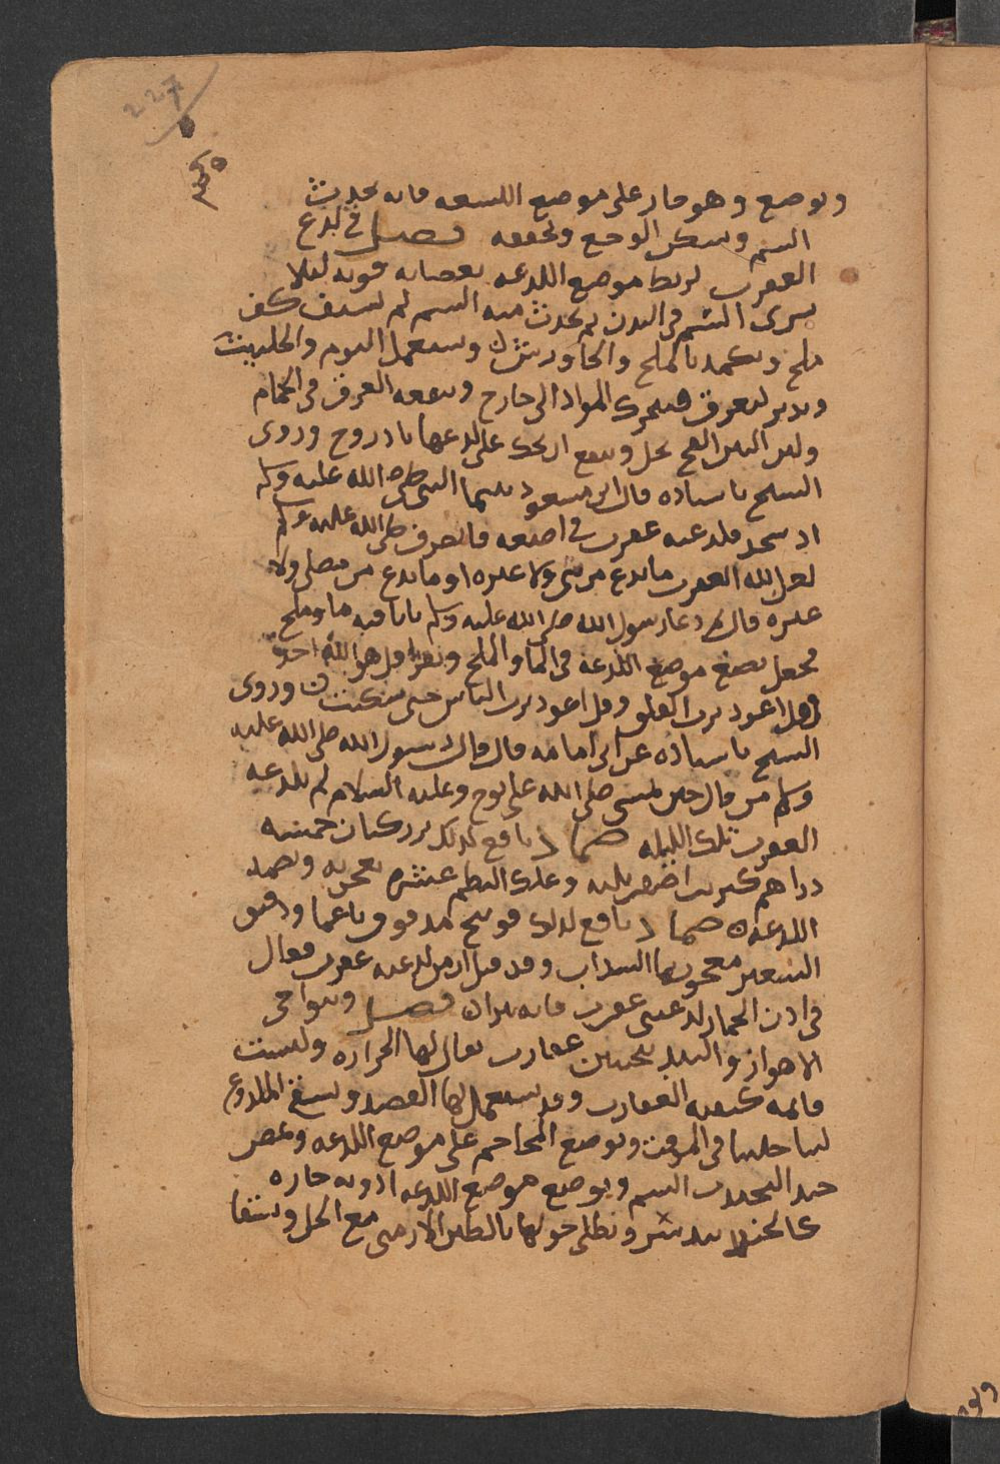 227
ويوضع وهو حار على موضع اللسعه فانه يجذب
السم ويسكن الوجع ويخففه فصل في لدغ
العقرب يربط موضع اللدغه بعصابه قويه ليلا
يسري السم في البدن ثم يجذب منه السم ثم يسف كف
ملح ويكمد بالملح والجاورش ويستعمل الثوم والحلتيت
ويدبر ليعرق فيتحرك المواد الى خارج وينفعه العرق في الحمام
ولبن التين الفج بخل وينفع ان يحك على لدغها بادروج وروى
الشيخ باسناده قال ابن مسعود بينما النبي صلى الله عليه وسلم
اذ سجد فلدغته عقرب في اصبعه فانصرف صلى الله عليه وسلم
لعن الله العقرب ما تدع من نبي ولا غيره او ما تدع من مصلي ولا
غيره قال ثم دعا رسول الله صلى الله عليه وسلم باناء فيه ما وملح
فجعل يضع موضع اللدغه في الما والملح ويقرا قل هو الله احد
وقل اعوذ برب الفلق وقل اعوذ برب الناس حتى سكنت وروى
الشيخ باسناده عن ابي امامه قال قال رسول الله صلى الله عليه
وسلم من قال حين يمسي صلى الله على نوح وعليه السلام لم يلدغه
العقرب تلك الليله ضماد نافع لذلك بزر كتان خمسه
دراهم كبريت اصفر ثلثه وعلك البطم عشره يعجن به ويضمد
اللدغه ضماد نافع لذلك فوتنج مدقوق ناعما ودقيق
الشعير معجون بما السداب وقد قيل ان من لدغته عقرب فقال
في اذن الحمار لدغتني عقرب فانه يبرا فصل وبنواحي
الاهواز و عقارب يقال لها الجراره وليست
قائمه كبقيه العقارب وقد يستعمل لها الفصد ويسقى الملدوغ
لبنا حليبا في الوقت ويوضع المحاجم على موضع اللدغه ويمص
جيدا ليجذب السم ويوضع موضع اللدغه ادويه حاره
كالجندبيدستر ويطلى حولها بالطين الارمني مع الخل ويسقا